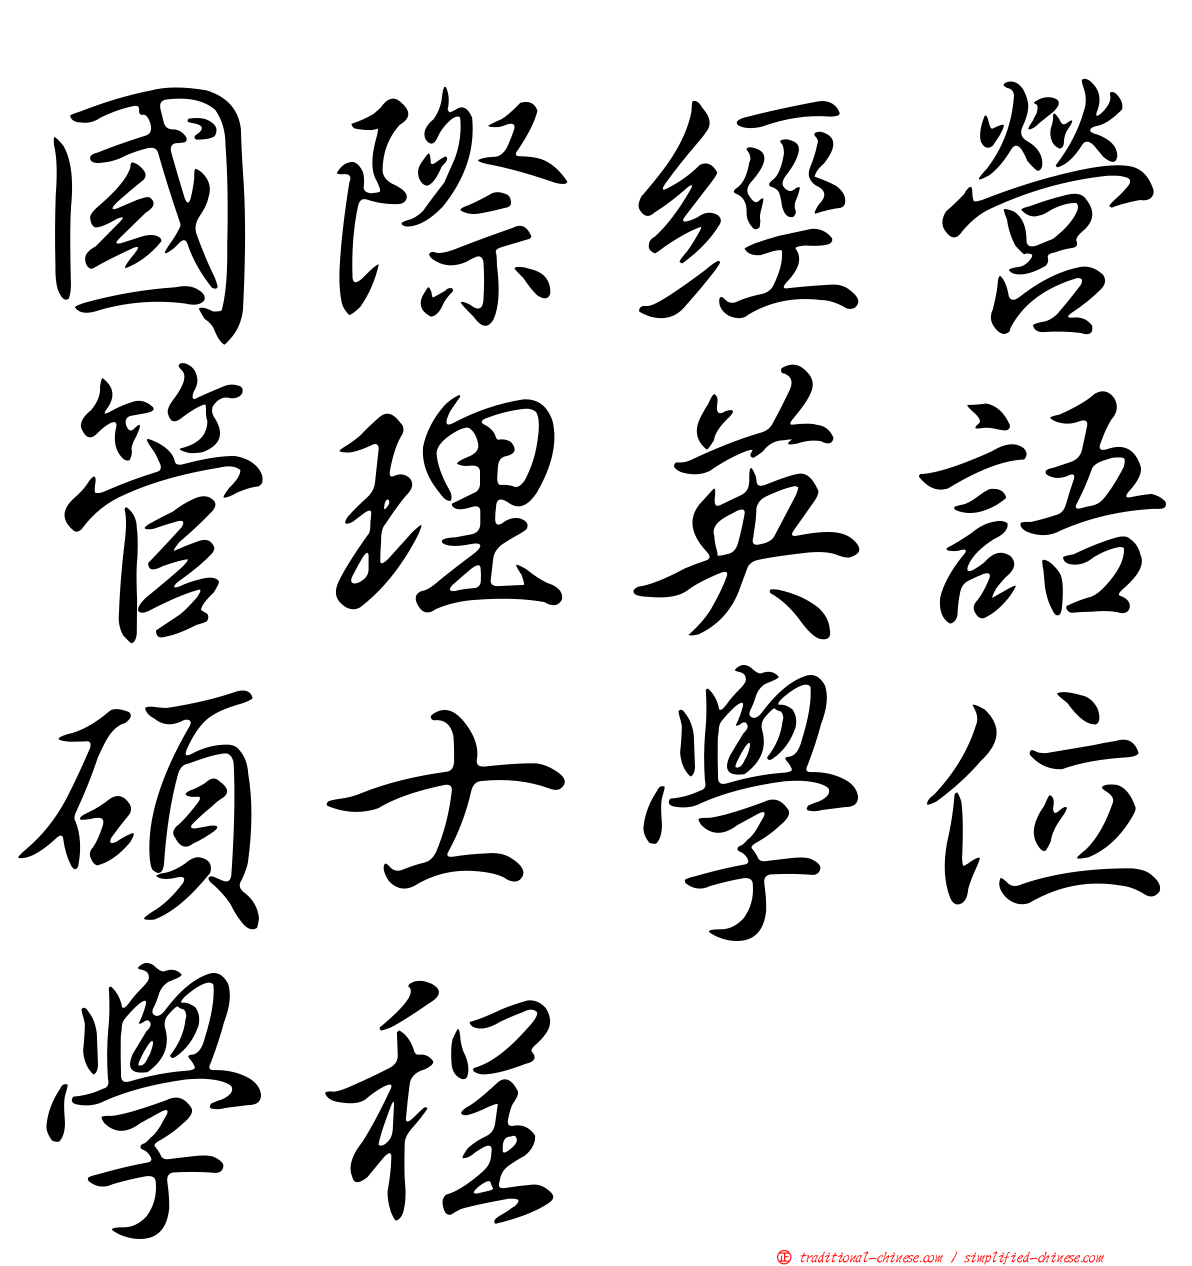 國際經營
管理英語
碩士學位
學程
㊣ traditional-chinese.com / simplified-chinese.com